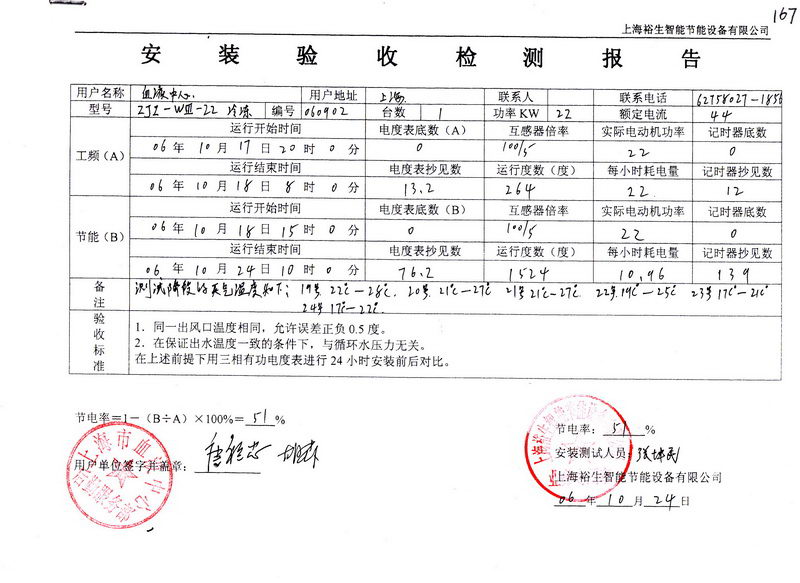 167
上海裕生智能节能设备有限公司
安装验收检测报告
用户名称 血液中心 用户地址 上海 联系人 联系电话 62758027-1856
型号 ZJZ-WⅢ-22 冷冻 编号 060902 台数 1 功率 KW 22 额定电流 44
工频（A） 运行开始时间 电度表底数（A） 互感器倍率 实际电动机功率 记时器底数
06 年 10 月 17 日 20 时 0 分 0 100/5 22 0
运行结束时间 电度表抄见数 运行度数（度） 每小时耗电量 记时器抄见数
06 年 10 月 18 日 8 时 0 分 13.2 264 22 12
节能（B） 运行开始时间 电度表底数（B） 互感器倍率 实际电动机功率 记时器底数
06 年 10 月 18 日 15 时 0 分 0 100/5 22 0
运行结束时间 电度表抄见数 运行度数（度） 每小时耗电量 记时器抄见数
06 年 10 月 24 日 10 时 0 分 76.2 1524 10.96 139
备注 测试阶段的天气温度如下：19号 22℃-28℃. 20号 21℃-27℃ 21号 21℃-27℃. 22号 19℃-25℃ 23号 17℃-21℃
24号 17℃-22℃.
验收标准
1．同一出风口温度相同，允许误差正负 0.5 度。
2．在保证出水温度一致的条件下，与循环水压力无关。
在上述前提下用三相有功电度表进行 24 小时安装前后对比。
节电率=1-（B÷A）×100%= 51 %
节电率： 51 %
用户单位签字并盖章：
安装测试人员：张坤民
上海裕生智能节能设备有限公司
06 年 10 月 24 日
上海市血液中心
后勤服务部